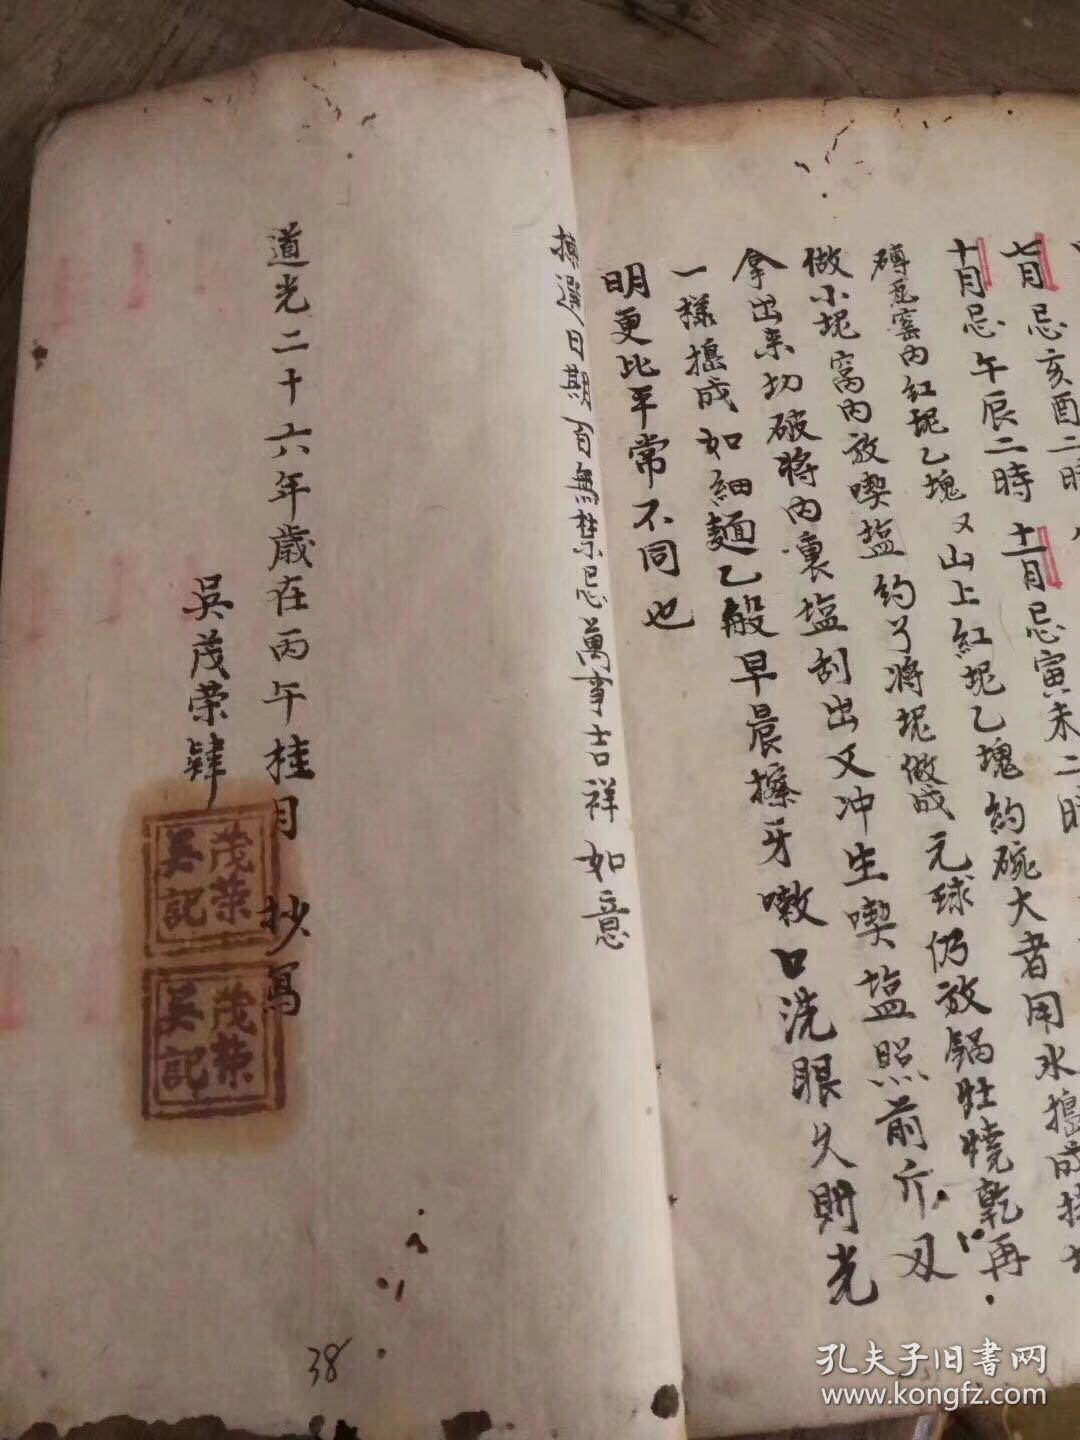 七月忌亥酉二時
十月忌午辰二時 十一月忌寅未二時
磚瓦窑内紅坭乙塊又山上紅坭乙塊約碗大者用水搗成
做小坭窩内放喫塩約將坭做成元球仍放鍋灶燒乾再
拿出来切破將内裏塩刮出又冲生喫塩照前
一樣搗成如細麵乙般早晨擦牙嗽口洗眼久則光
明更比平常不同也
揀選日期百無禁忌萬事吉祥如意
道光二十六年歲在丙午桂月 抄寫
吳茂荣肆
茂荣
吳記
茂荣
吳記
38
孔夫子旧書网
www.kongfz.com